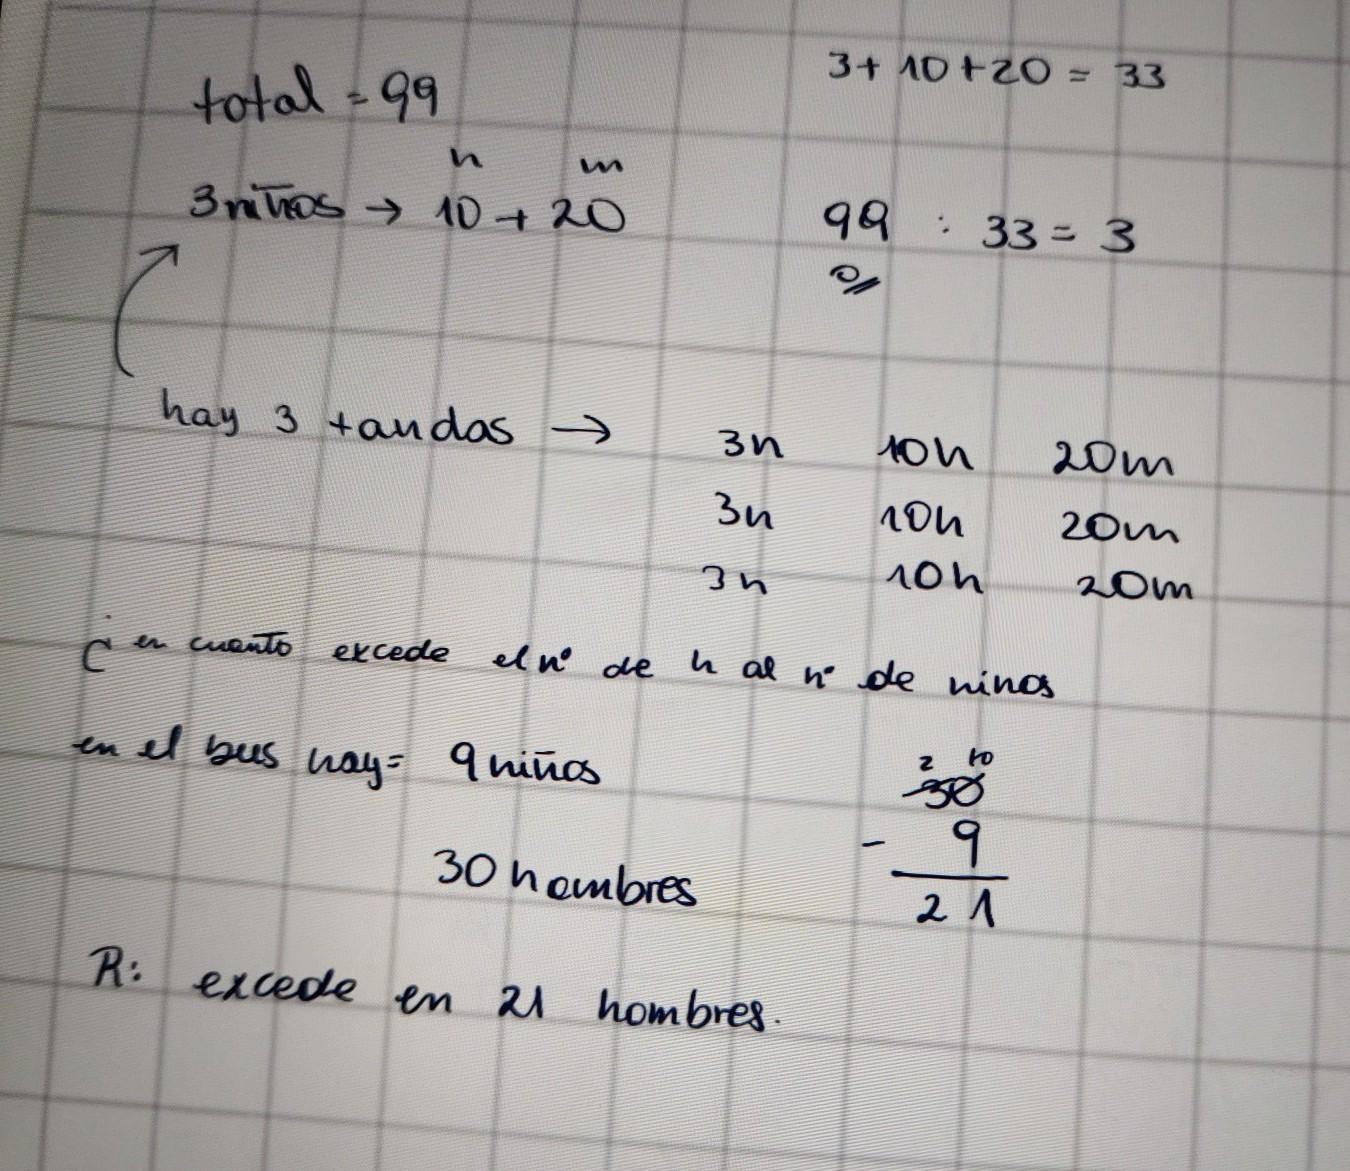 total = 99
3 + 10 + 20 = 33
h m
3 niños → 10 + 20
99 : 33 = 3
0
hay 3 tandas → 3n 10h 20m
3n 10h 20m
3n 10h 20m
¿ en cuanto excede el nº de h al nº de ninos
en el bus hay = 9 niños
30 hombres
2 10
30
- 9
21
R: excede en 21 hombres.